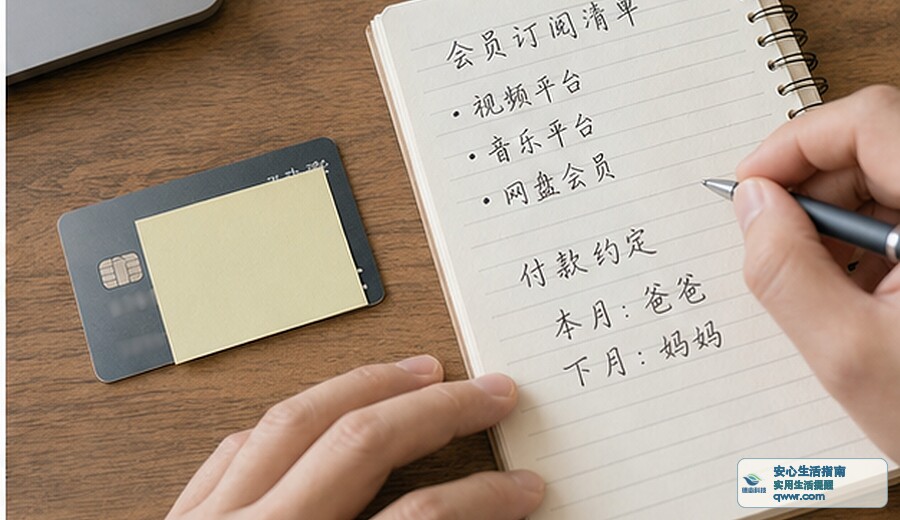 会员订阅清单
• 视频平台
• 音乐平台
• 网盘会员
付款约定
本月：爸爸
下月：妈妈
安心生活指南
实用生活提醒
qwwr.com